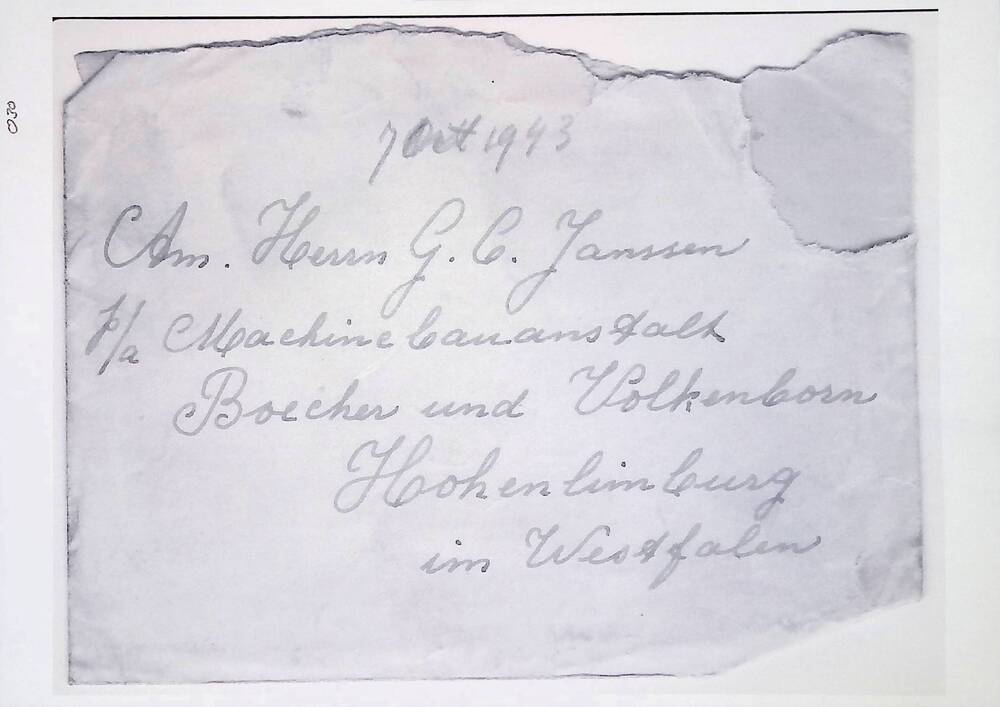 030
7 Oct 1943
Am. Herrn G. C. Janssen
p/a Machinebauanstalt
Boecher und Volkenborn
Hohenlimburg
im Westfalen